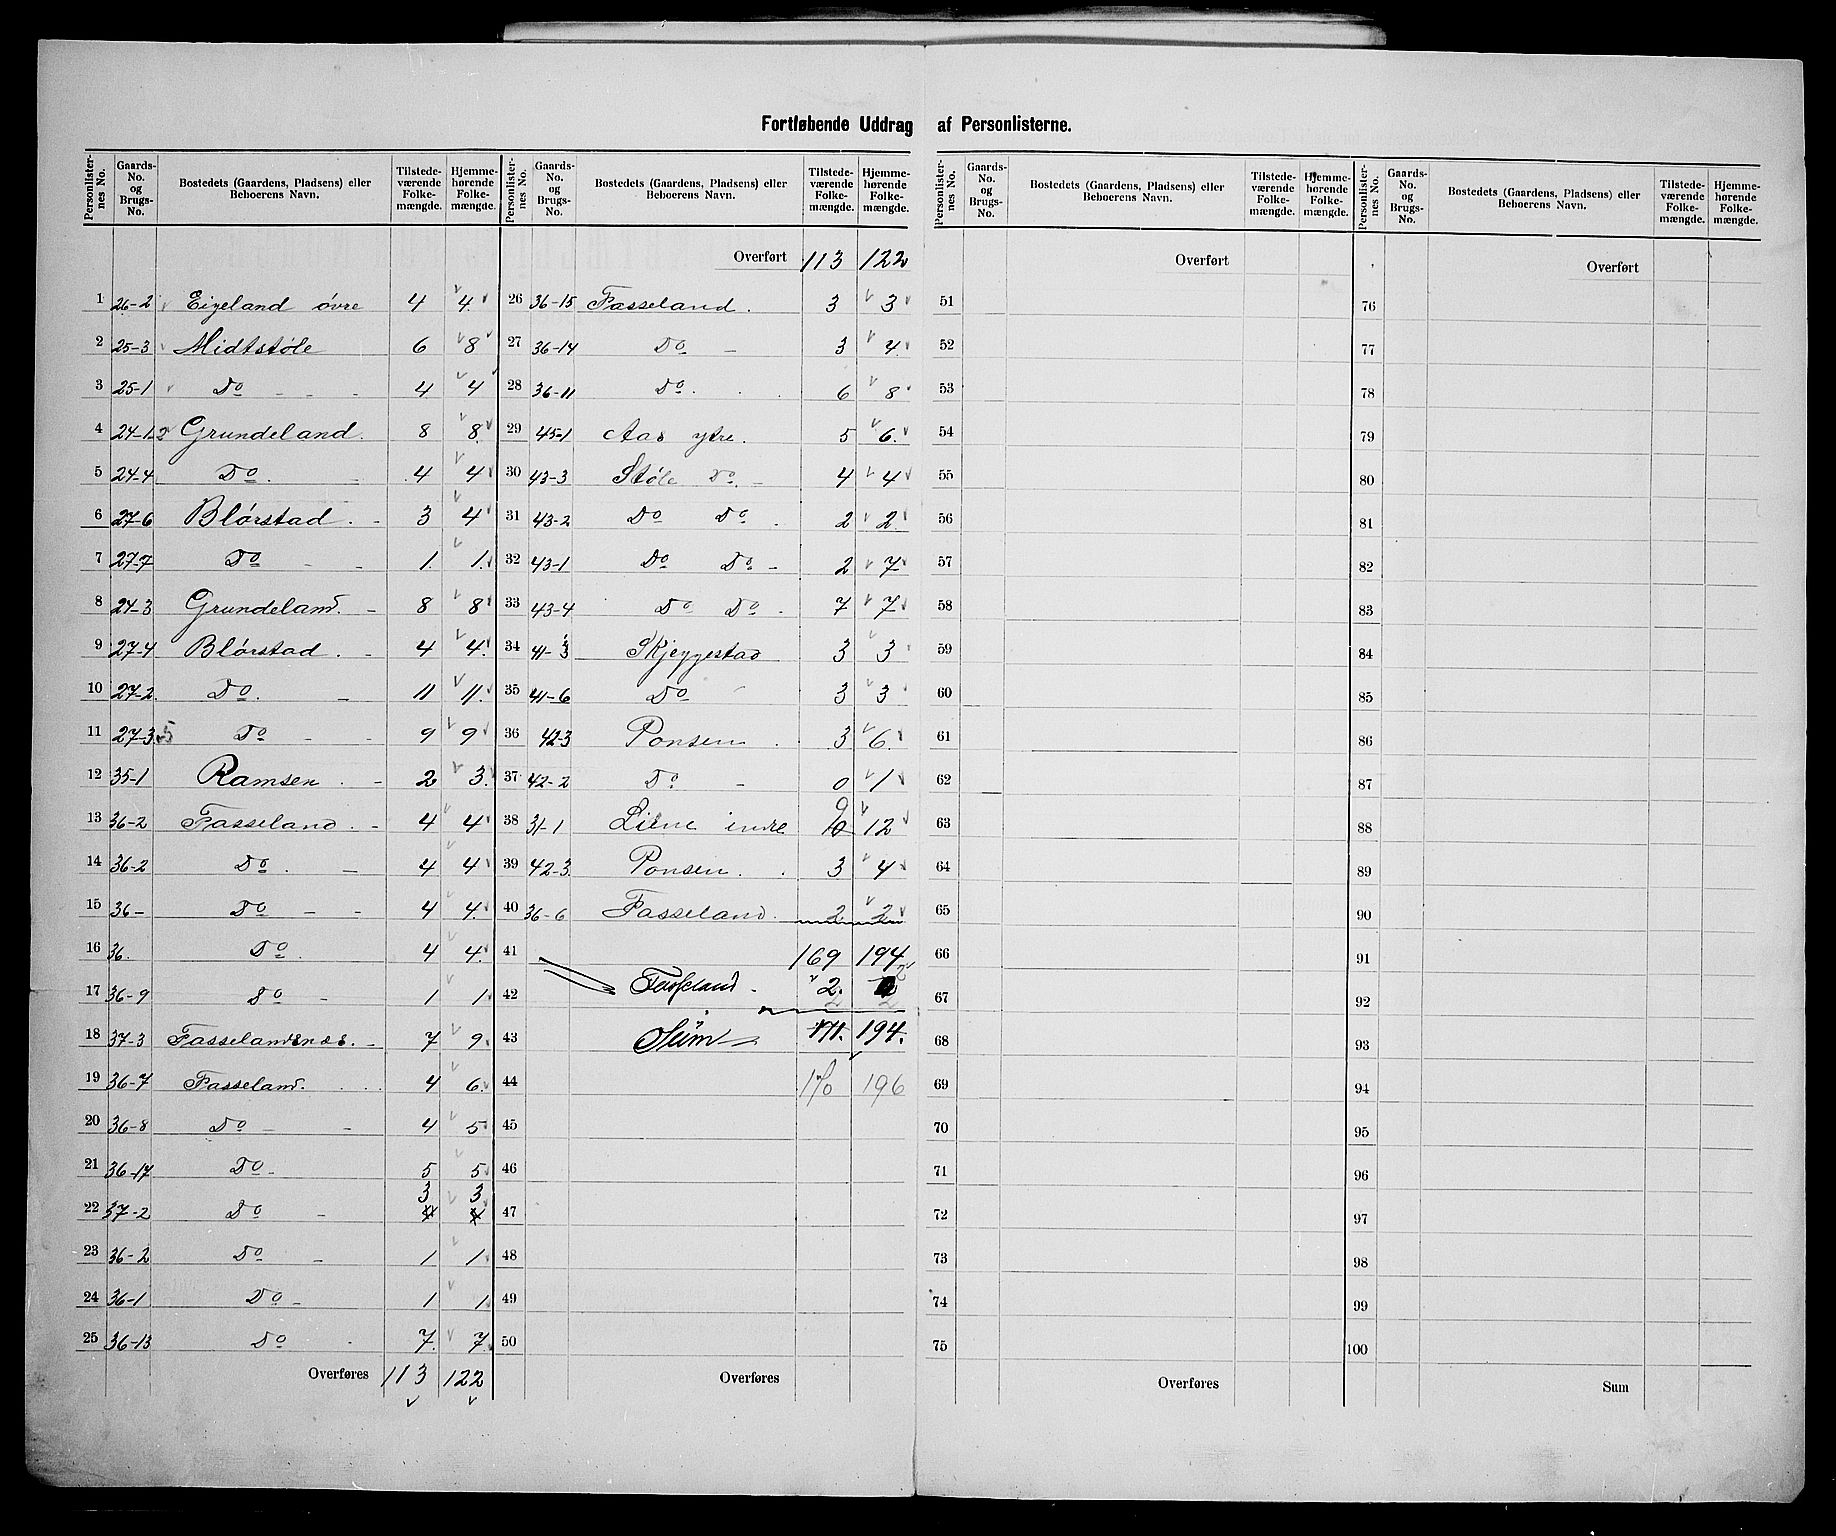 Fortløbende Uddrag af Personlisterne.
Personlisternes No. Gaards-No. og Brugs-No. Bostedets (Gaardens, Pladsens) eller Beboerens Navn. Tilstedeværende Folkemængde. Hjemmehørende Folkemængde.
1 26-2 Eigeland øvre 4 4.
2 25-3 Midtstøle 6 8
3 25-1 Do - - - 4 4
4 24-1-2 Grundeland. 8 8.
5 24-4 Do. - 4 4
6 27-6 Blørstad. - 3 4
7 27-7 Do - - 1. 1.
8 24-3 Grundeland. - 8 8
9 27-4 Blørstad. - 4 4.
10 27-2. Do. - 11 11.
11 27-3.5 Do - - 9 9
12 35-1 Ramsen. - 2 3.
13 36-2 Fasseland. - 4 4
14 36-2 Do. - 4 4
15 36- Do - - 4 4.
16 36. Do. 4 4.
17 36-9 Do - 1 1
18 37-3 Fasselandsnæs. - 7 9
19 36-7 Fasseland. 4 6.
20 36-8 Do - - 4 5
21 36-17 Do - 5 5
3 3
22 37-2 Do - 4 4
23 36-2 Do - 1 1
24 36-1 Do - 1 1
25 36-13 Do - 7. 7.
Overføres 113 122
Personlisternes No. Gaards-No. og Brugs-No. Bostedets (Gaardens, Pladsens) eller Beboerens Navn. Tilstedeværende Folkemængde. Hjemmehørende Folkemængde.
Overført 113 122
26 36-15 Fasseland. 3 3
27 36-14 Do - 3 4.
28 36-11 Do. 6 8
29 45-1 Aas ytre. 5 6.
30 43-3 Støle Do. - 4 4
31 43-2 Do Do. 2 2.
32 43-1 Do Do - 2 7
33 43-4 Do Do. 7 7
34 41-3 Skjeggestad 3 3
35 41-6 Do 3 3
36 42-3 Ponsen. 3 6.
37 42-2 Do - 0 1
9
38 31-1 Liene indre 10 12
39 42-3. Ponsen. 3 4
40 36-6 Fasseland. 2 2
41 169 194
42 Fasseland - 2. 2
43 Sum 171. 194.
44 170 196
45
46
47
48
49
50
Overføres
Personlisternes No. Gaards-No. og Brugs-No. Bostedets (Gaardens, Pladsens) eller Beboerens Navn. Tilstedeværende Folkemængde. Hjemmehørende Folkemængde.
Overført
51
52
53
54
55
56
57
58
59
60
61
62
63
64
65
66
67
68
69
70
71
72
73
74
75
Overføres
Personlisternes No. Gaards-No. og Brugs-No. Bostedets (Gaardens, Pladsens) eller Beboerens Navn. Tilstedeværende Folkemængde. Hjemmehørende Folkemængde.
Overført
76
77
78
79
80
81
82
83
84
85
86
87
88
89
90
91
92
93
94
95
96
97
98
99
100
Sum